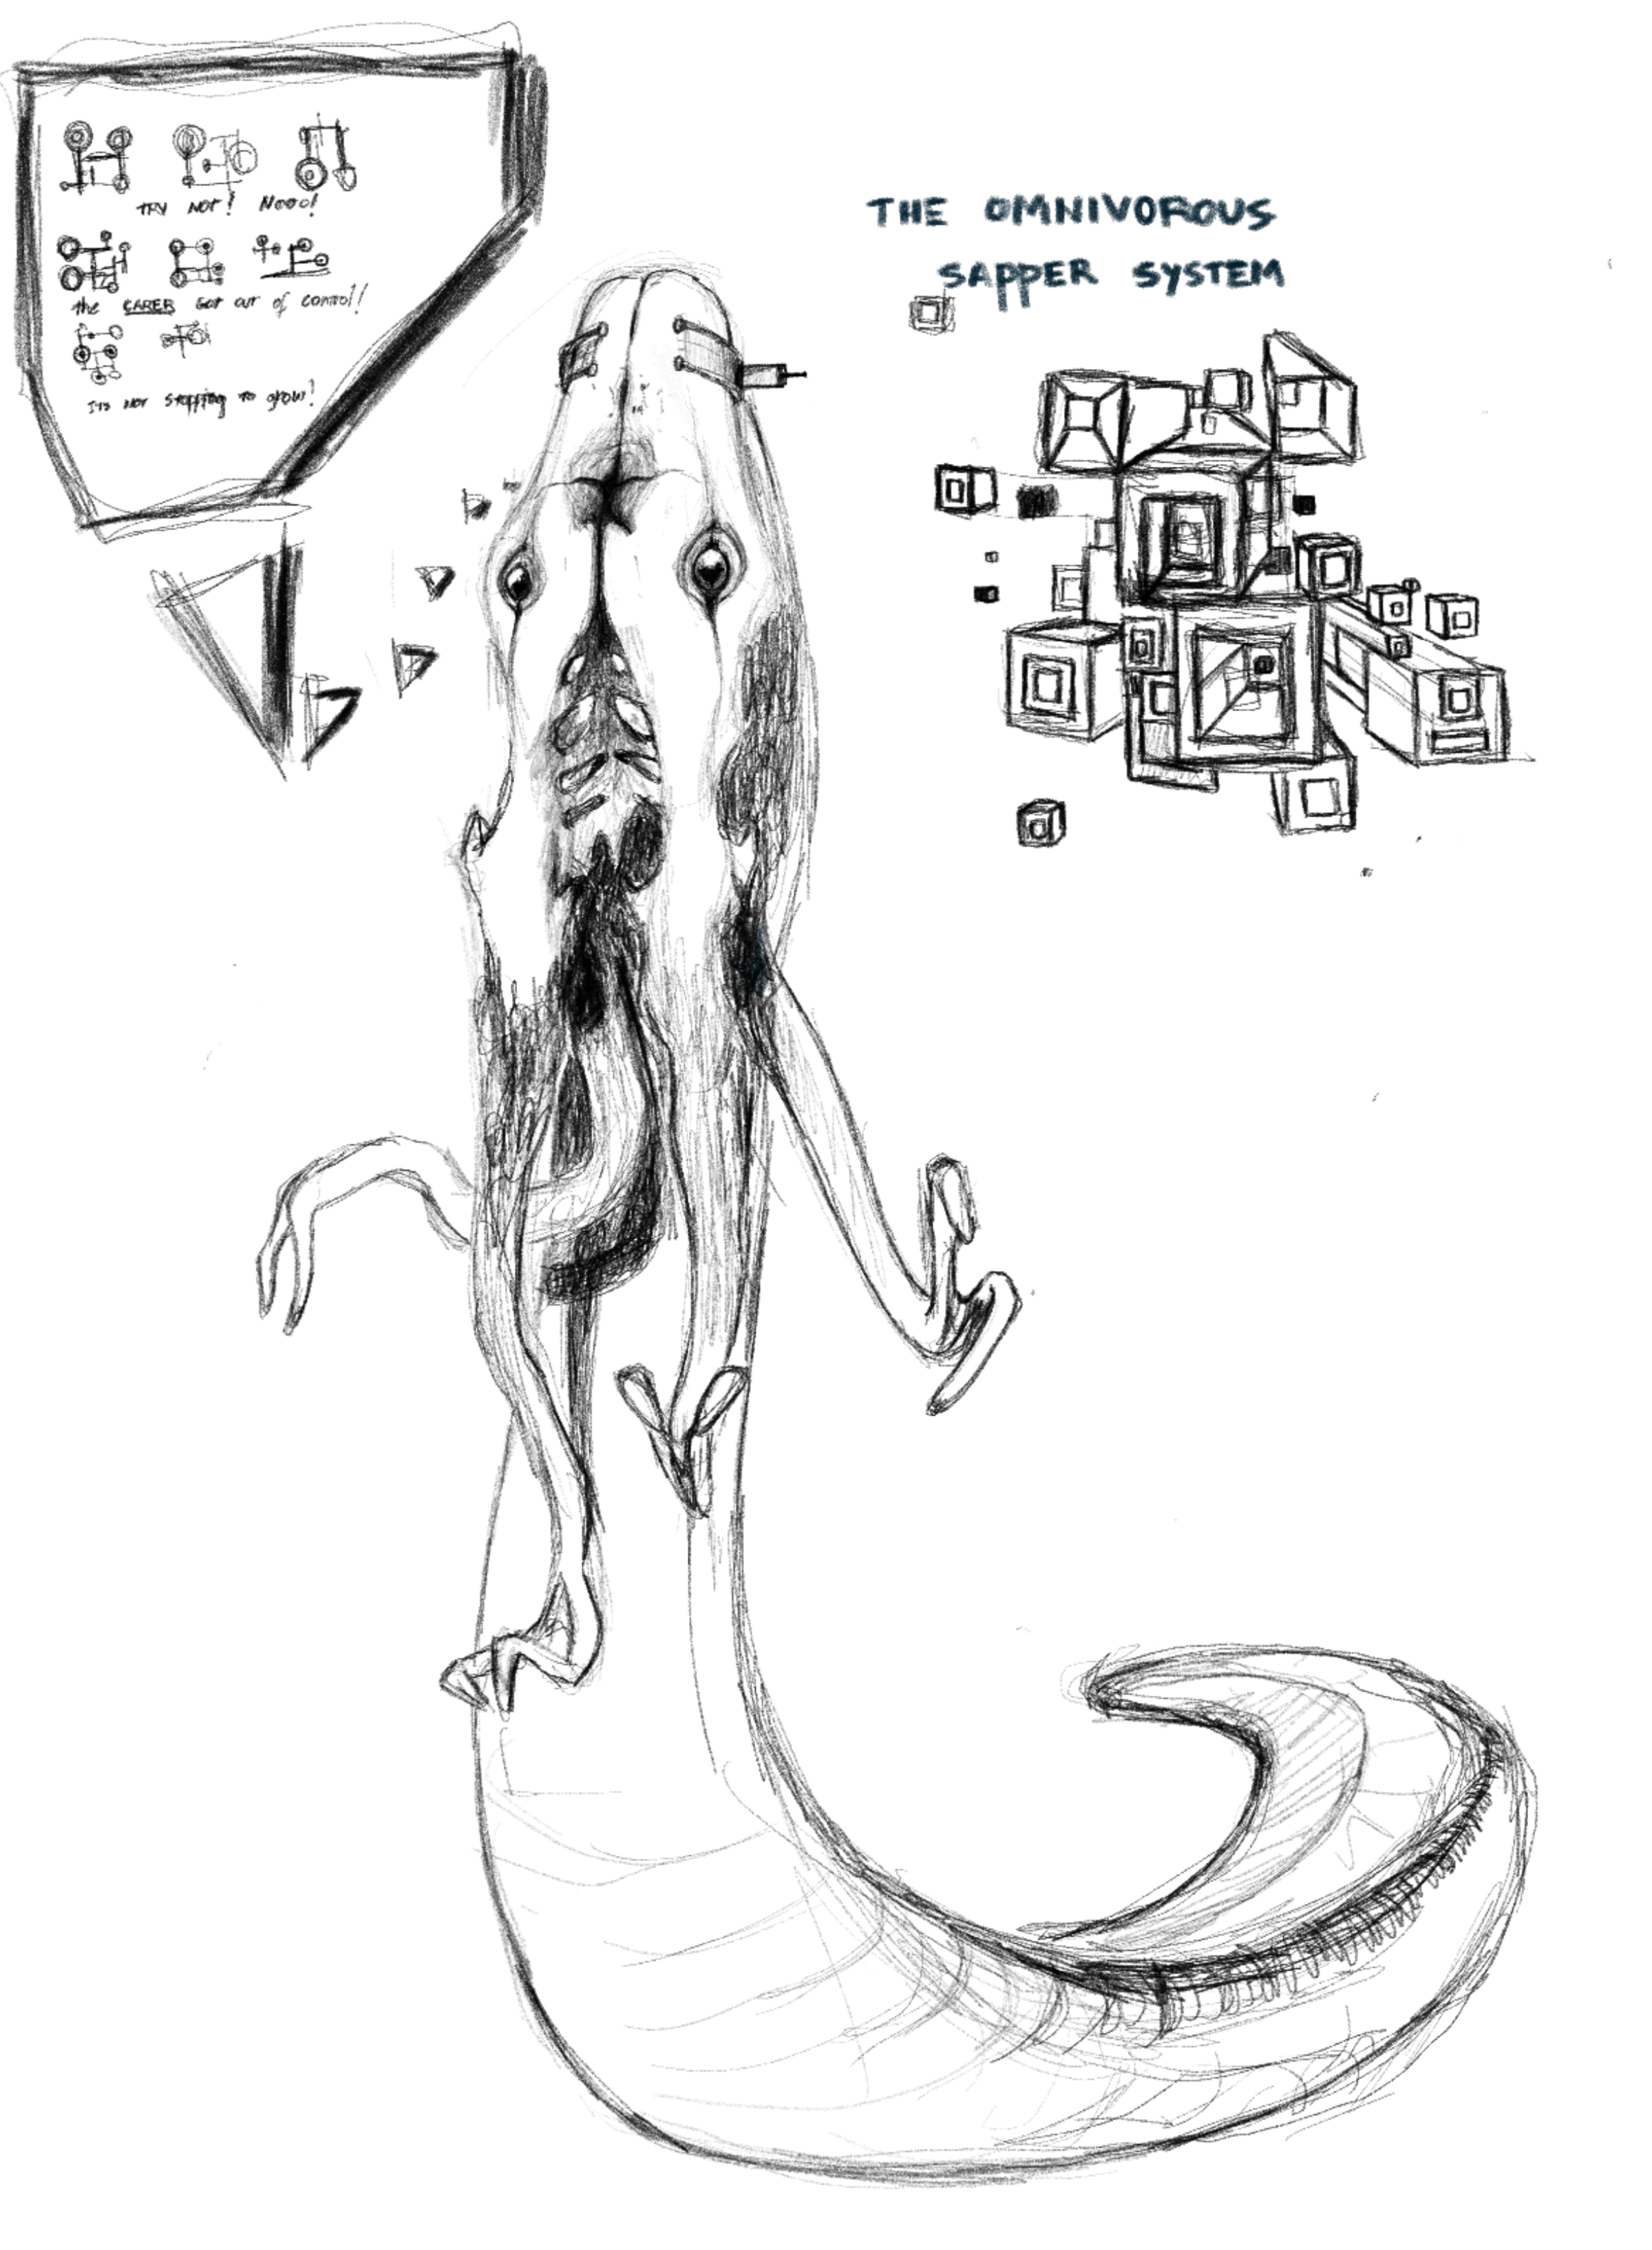 TRY NOT! Nooo!
the CARER Got out of control!
Its not stopping to grow!
THE OMNIVOROUS
SAPPER SYSTEM